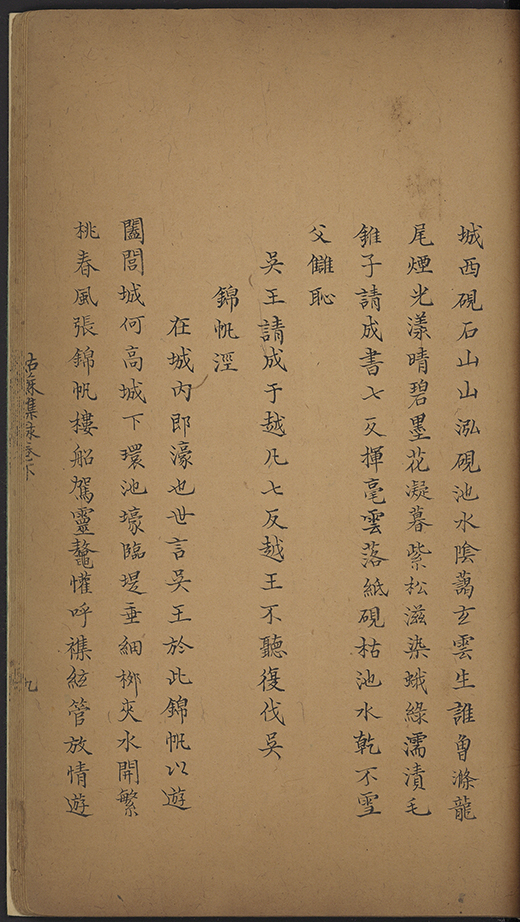 城西硯石山山泓硯池水陰藹玄雲生誰曾滌龍
尾煙光漾晴碧墨花凝暮紫松滋染蛾綠濡漬毛
錐子請成書七反揮毫雲落紙硯枯池水乾不雪
父讎恥
吳王請成于越凡七反越王不聽復伐吳
錦帆涇
在城內即濠也世言吳王於此錦帆以遊
闔閭城何高城下環池壕臨堤垂細栁夾水開繁
桃春風張錦帆樓船駕靈鼇懽呼襍絃管放情遊
姑蘇集
九